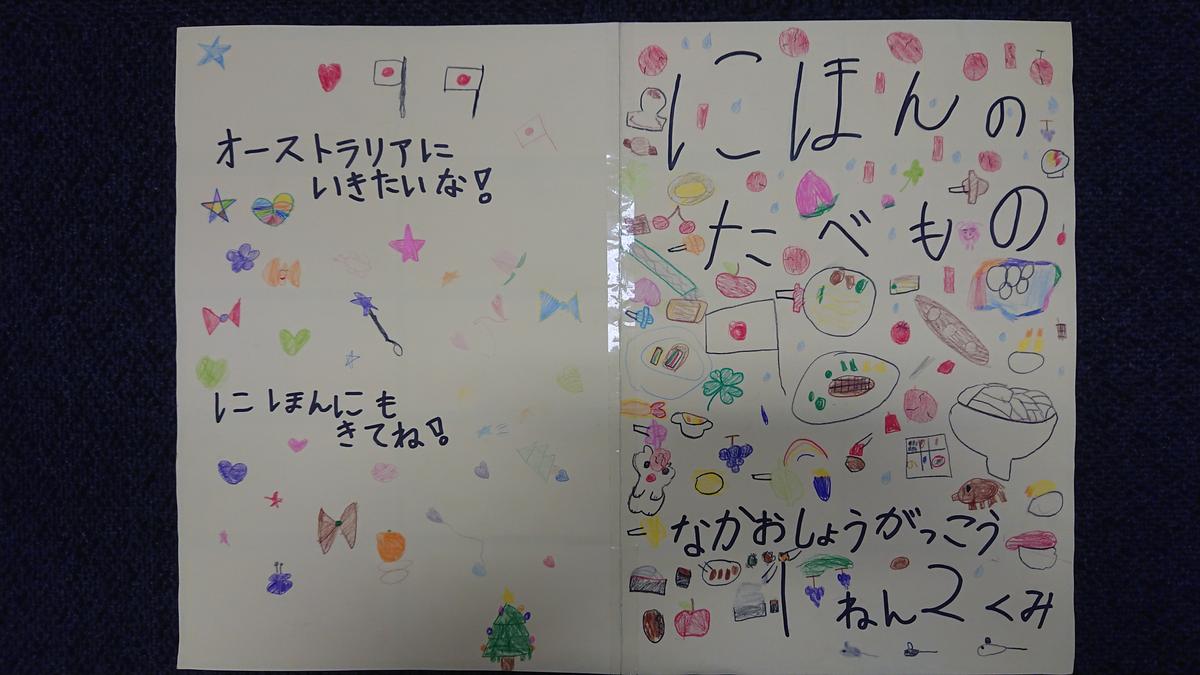 オーストラリアに
いきたいな!
にほんにも
きてね!
にほんの
たべもの
なかおしょうがっこう
1ねん2くみ